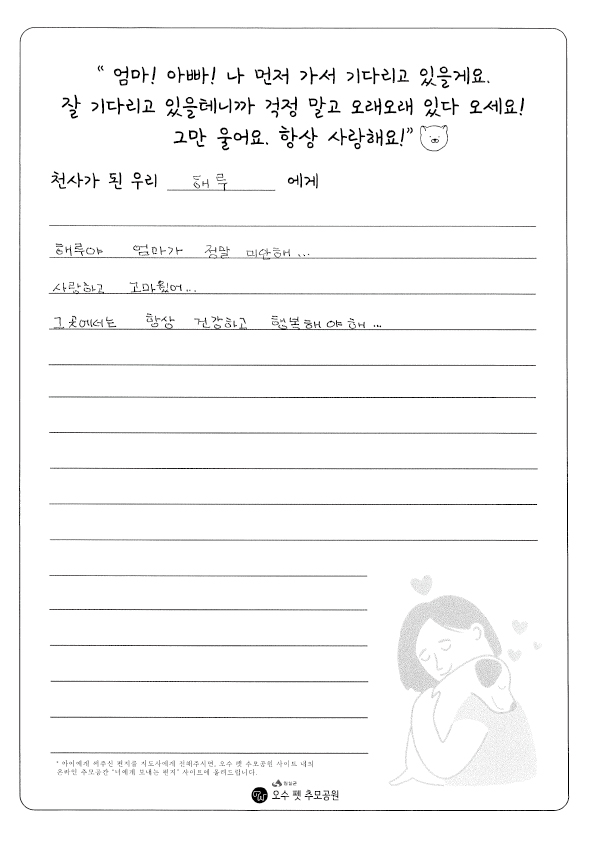 “ 엄마! 아빠! 나 먼저 가서 기다리고 있을게요.
잘 기다리고 있을테니까 걱정 말고 오래오래 있다 오세요!
그만 울어요. 항상 사랑해요!”
천사가 된 우리 해루 에게
해루야 엄마가 정말 미안해...
사랑하고 고마웠어...
그곳에서는 항상 건강하고 행복해야해...
* 아이에게 써주신 편지를 지도사에게 전해주시면, 오수 펫 추모공원 사이트 내의
온라인 추모공간 "너에게 보내는 편지" 사이트에 올려드립니다.
임실군
오수 펫 추모공원